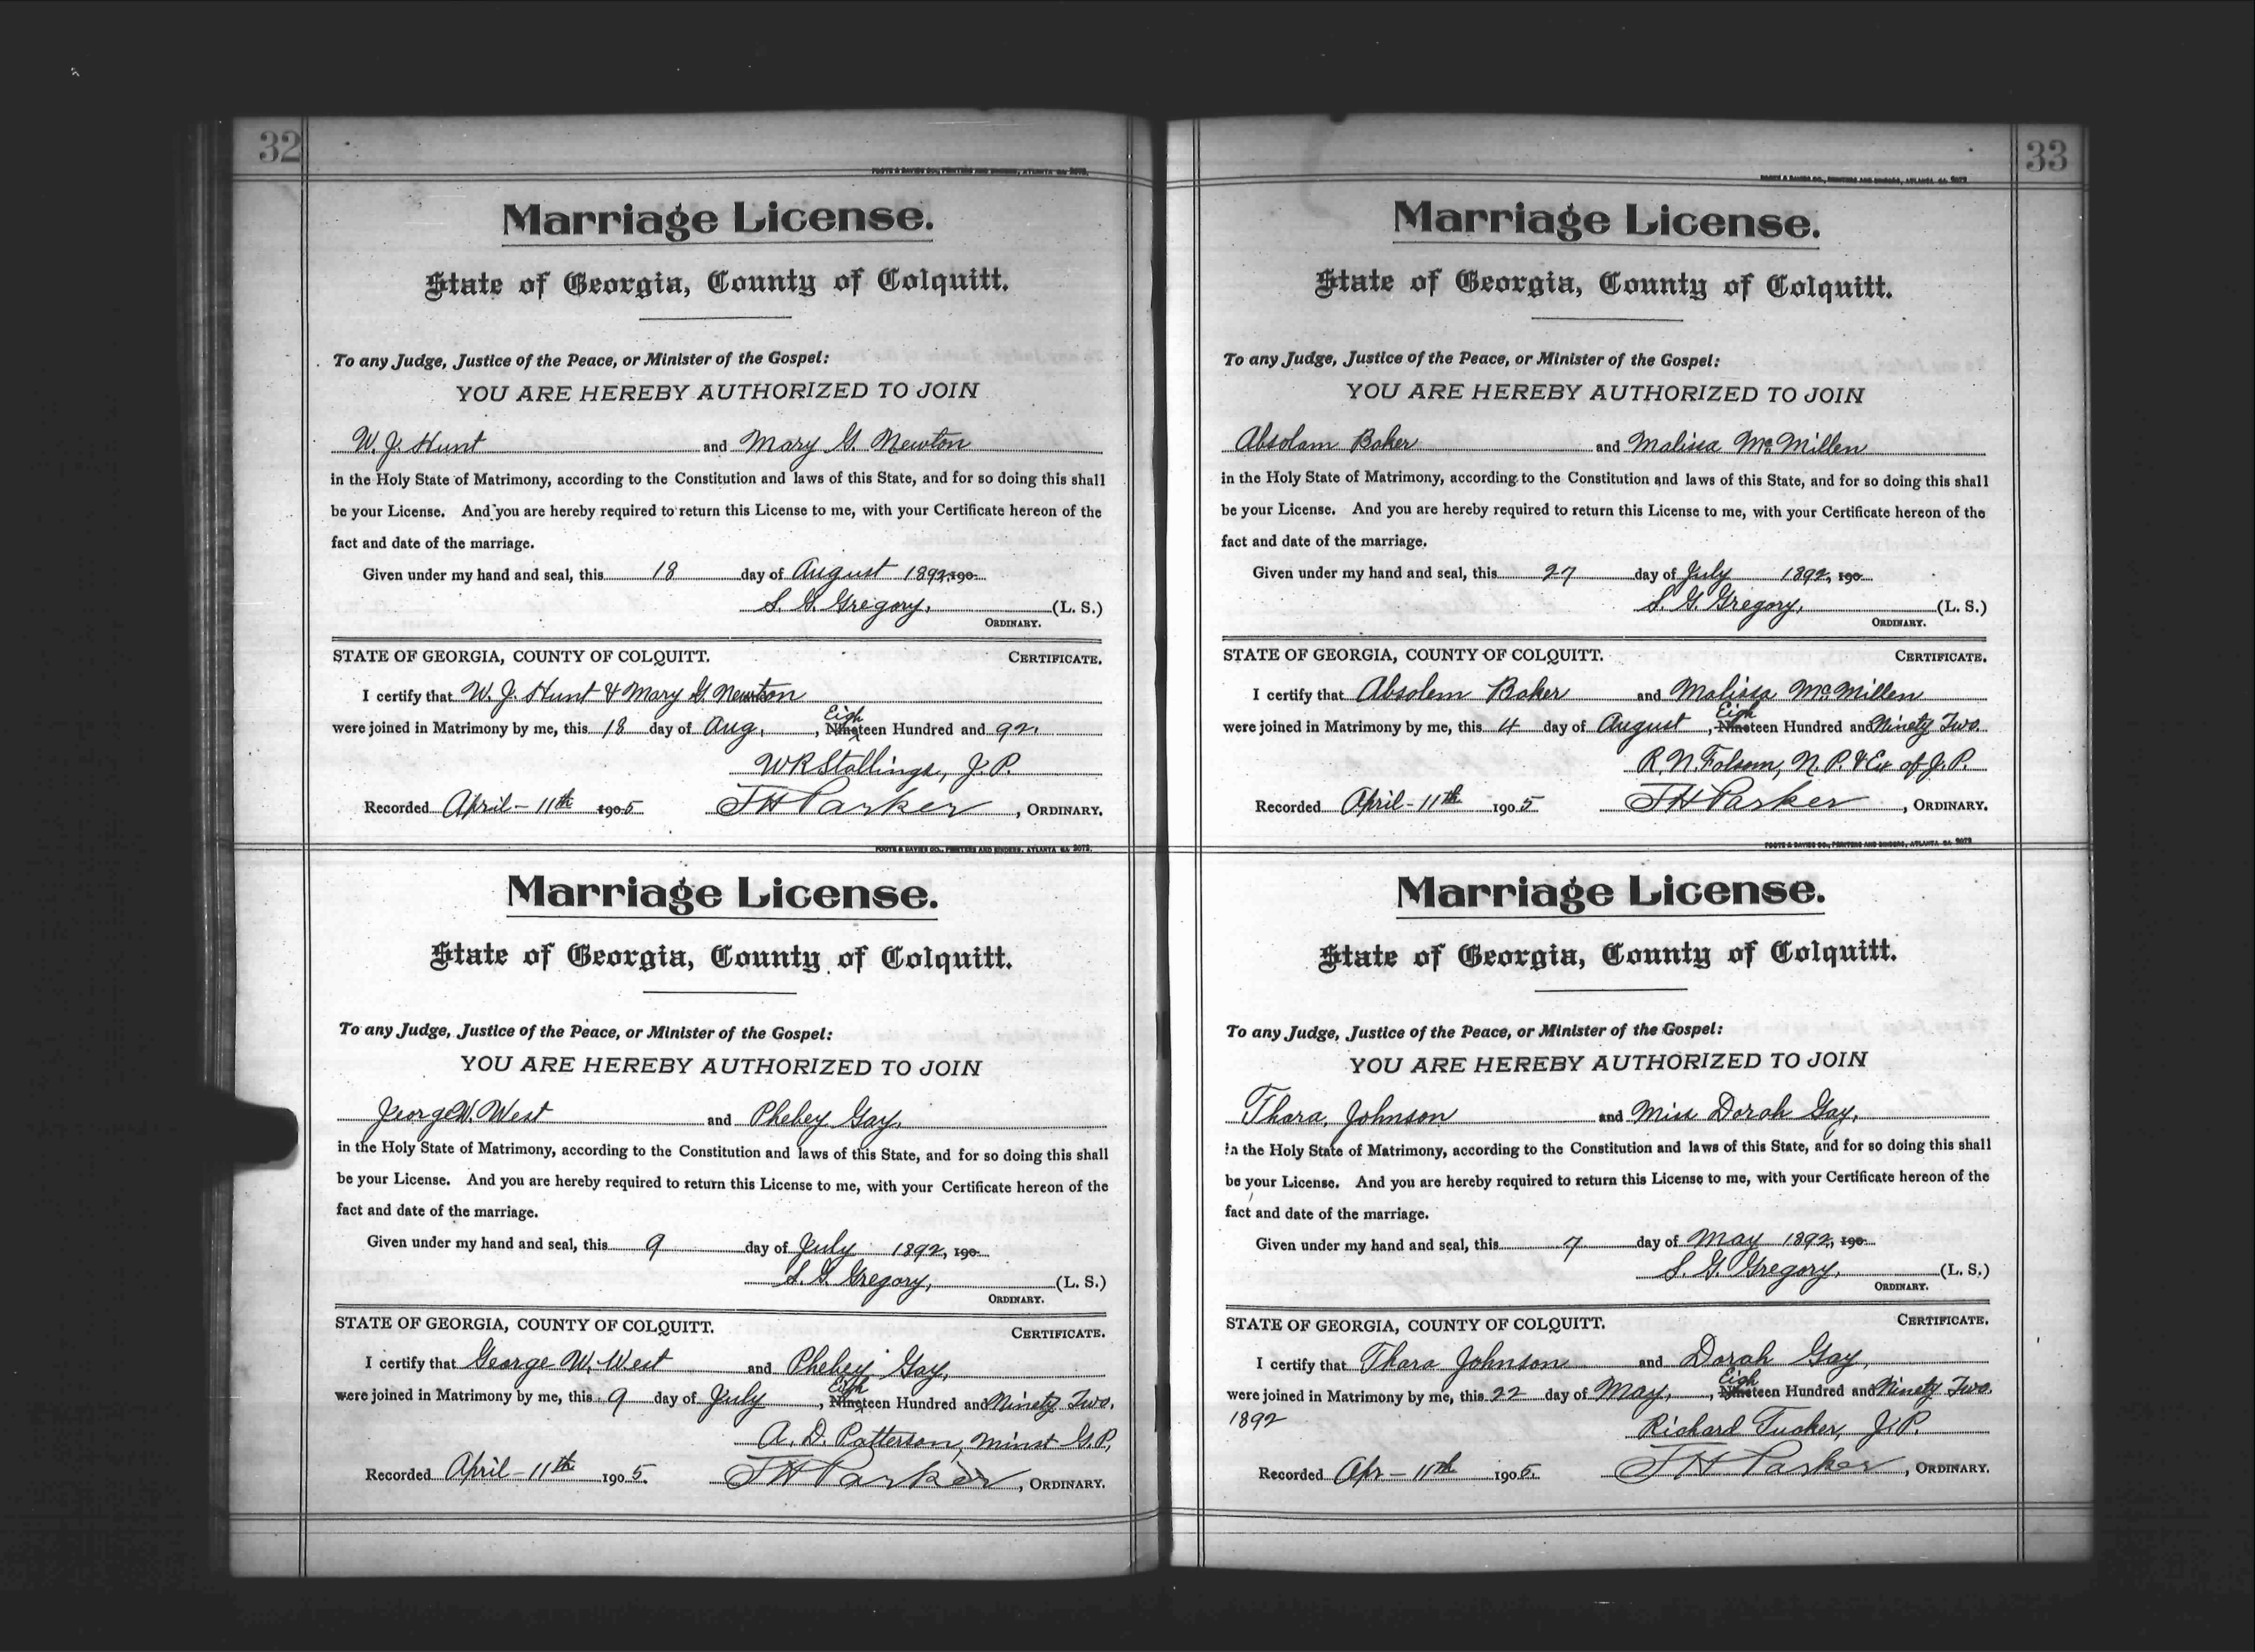 32
FOOTE & DAVIES CO., PRINTERS AND BINDERS, ATLANTA GA. 2072.
Marriage License.
State of Georgia, County of Colquitt.
To any Judge, Justice of the Peace, or Minister of the Gospel:
YOU ARE HEREBY AUTHORIZED TO JOIN
W. J. Hunt and Mary G. Newton
in the Holy State of Matrimony, according to the Constitution and laws of this State, and for so doing this shall
be your License. And you are hereby required to return this License to me, with your Certificate hereon of the
fact and date of the marriage.
Given under my hand and seal, this 18 day of August 1892, 190
S. G. Gregory, (L. S.)
ORDINARY.
STATE OF GEORGIA, COUNTY OF COLQUITT. CERTIFICATE.
I certify that W. J. Hunt & Mary G. Newton
Eigh
were joined in Matrimony by me, this 18 day of Aug., Nineteen Hundred and 92.
W R Stallings, J. P.
Recorded April - 11th 1905 J H Parker, ORDINARY.
FOOTE & DAVIES CO., PRINTERS AND BINDERS, ATLANTA GA. 2072.
Marriage License.
State of Georgia, County of Colquitt.
To any Judge, Justice of the Peace, or Minister of the Gospel:
YOU ARE HEREBY AUTHORIZED TO JOIN
George W. West and Phebey Gay,
in the Holy State of Matrimony, according to the Constitution and laws of this State, and for so doing this shall
be your License. And you are hereby required to return this License to me, with your Certificate hereon of the
fact and date of the marriage.
Given under my hand and seal, this 9 day of July 1892, 190
S. G. Gregory, (L. S.)
ORDINARY.
STATE OF GEORGIA, COUNTY OF COLQUITT. CERTIFICATE.
I certify that George W. West and Phebey Gay,
Eigh
were joined in Matrimony by me, this 9 day of July, Nineteen Hundred and Ninety Two.
A. D. Patterson, Minst G. P.
Recorded April - 11th 1905. J H Parker, ORDINARY.
33
FOOTE & DAVIES CO., PRINTERS AND BINDERS, ATLANTA GA. 2072
Marriage License.
State of Georgia, County of Colquitt.
To any Judge, Justice of the Peace, or Minister of the Gospel:
YOU ARE HEREBY AUTHORIZED TO JOIN
Absolam Baker and Malissa McMillen
in the Holy State of Matrimony, according to the Constitution and laws of this State, and for so doing this shall
be your License. And you are hereby required to return this License to me, with your Certificate hereon of the
fact and date of the marriage.
Given under my hand and seal, this 27 day of July 1892, 190
S. G. Gregory, (L. S.)
ORDINARY.
STATE OF GEORGIA, COUNTY OF COLQUITT. CERTIFICATE.
I certify that Absolem Baker and Malissa McMillen
Eigh
were joined in Matrimony by me, this 4 day of August, Nineteen Hundred and Ninety Two.
R. N. Folsom, N. P. & Ex of J. P.
Recorded April - 11th 1905 J H Parker, ORDINARY.
FOOTE & DAVIES CO., PRINTERS AND BINDERS, ATLANTA GA. 2072
Marriage License.
State of Georgia, County of Colquitt.
To any Judge, Justice of the Peace, or Minister of the Gospel:
YOU ARE HEREBY AUTHORIZED TO JOIN
Thara, Johnson and Miss Dorah Gay,
in the Holy State of Matrimony, according to the Constitution and laws of this State, and for so doing this shall
be your License. And you are hereby required to return this License to me, with your Certificate hereon of the
fact and date of the marriage.
Given under my hand and seal, this 7 day of May 1892, 190
S. G. Gregory, (L. S.)
ORDINARY.
STATE OF GEORGIA, COUNTY OF COLQUITT. CERTIFICATE.
I certify that Thara Johnson and Dorah Gay,
Eigh
were joined in Matrimony by me, this 22 day of May, Nineteen Hundred and Ninety Two.
1892
Richard Tucker, J. P.
Recorded Apr - 11th 1905. J H Parker, ORDINARY.